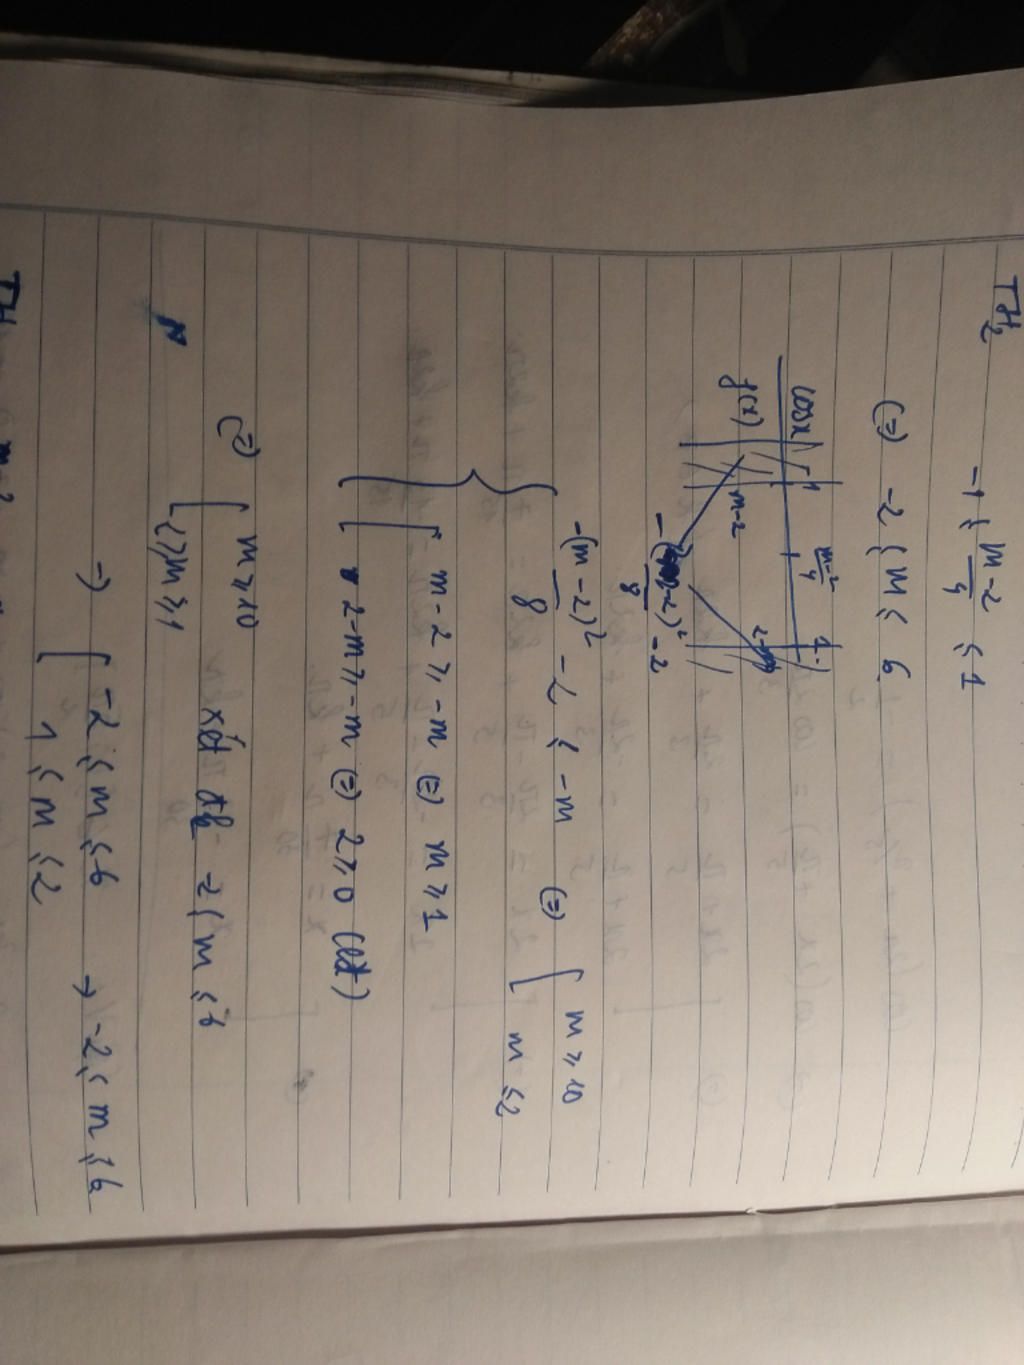 TH2
-1 ≤ (m-2)/4 ≤ 1
(=) -2 ≤ m ≤ 6
cosx | -1 (m-2)/4 1
g(x) | m-2 2-m
-(m-2)²/8 - 2
{ -(m-2)²/8 - 2 ≤ -m (=) [ m ≥ 10
m ≤ 2
[ m-2 ≥ -m (=) m ≥ 1
2-m ≥ -m (=) 2 ≥ 0 (lđ)
(=) [ m ≥ 10 xét đk -2 ≤ m ≤ 6
m ≥ 1
=) [ -2 ≤ m ≤ 6 → -2 ≤ m ≤ 6
1 ≤ m ≤ 2
TH